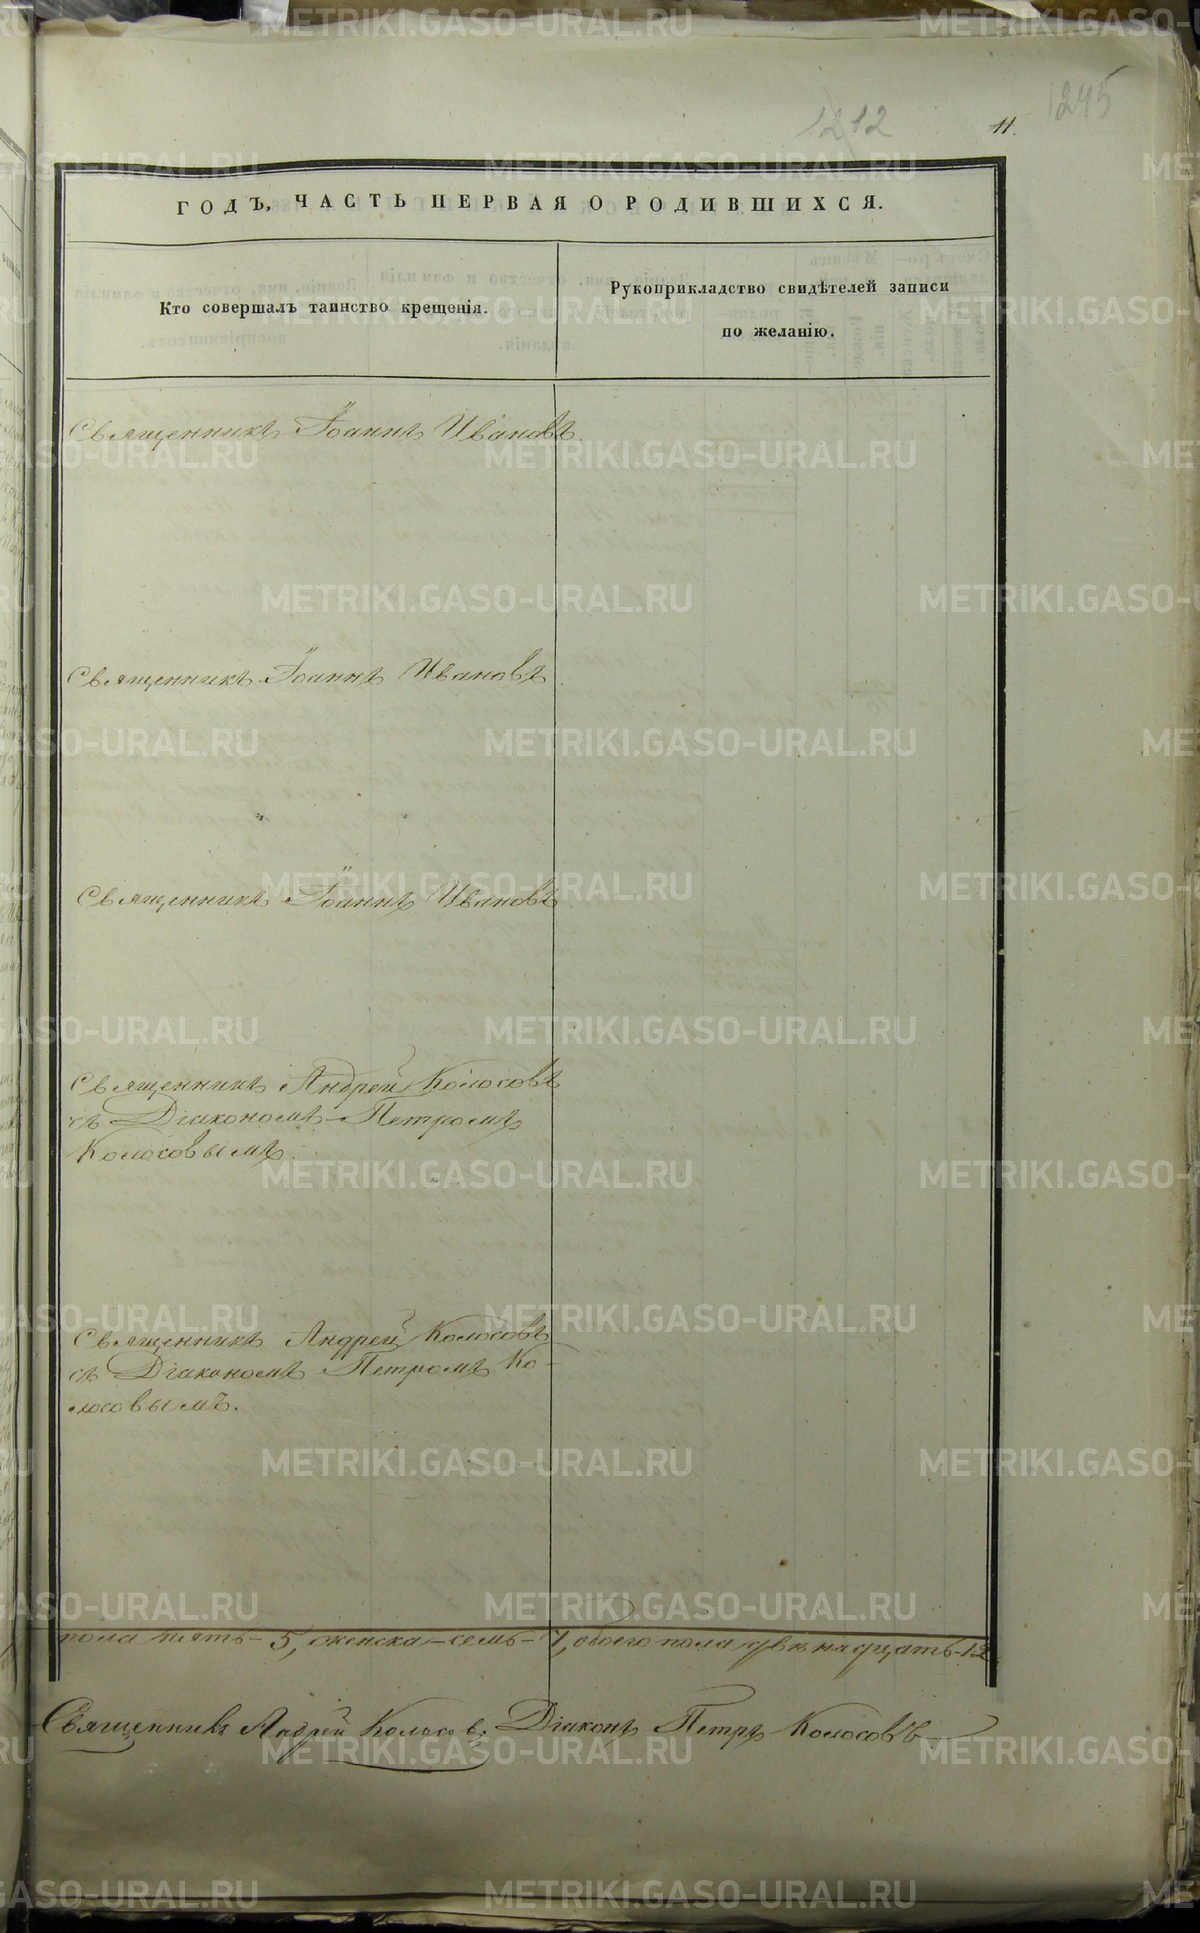 1245
1212
11.
ГОДЪ, ЧАСТЬ ПЕРВАЯ О РОДИВШИХСЯ.
Кто совершалъ таинство крещенія.
Рукоприкладство свидѣтелей записи
по желанію.
Священникъ Іоаннъ Ивановъ.
Священникъ Іоаннъ Ивановъ
Священникъ Іоаннъ Ивановъ
Священникъ Андрей Колосовъ
съ Діакономъ Петромъ
Колосовымъ.
Священникъ Андрей Колосовъ
съ Діакономъ Петромъ Ко-
лосовымъ.
пола пять - 5, женска - семь - 7, обоего пола двѣнадцать - 12
Священникъ Андрей Колосовъ. Діаконъ Петръ Колосовъ
METRIKI.GASO-URAL.RU